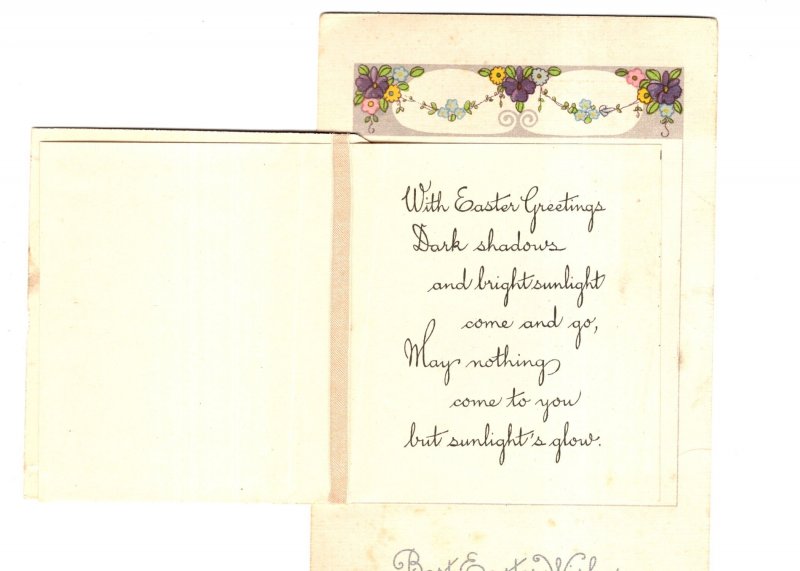 With Easter Greetings
Dark shadows
and bright sunlight
come and go,
May nothing
come to you
but sunlight's glow.
Best Easter Wishes